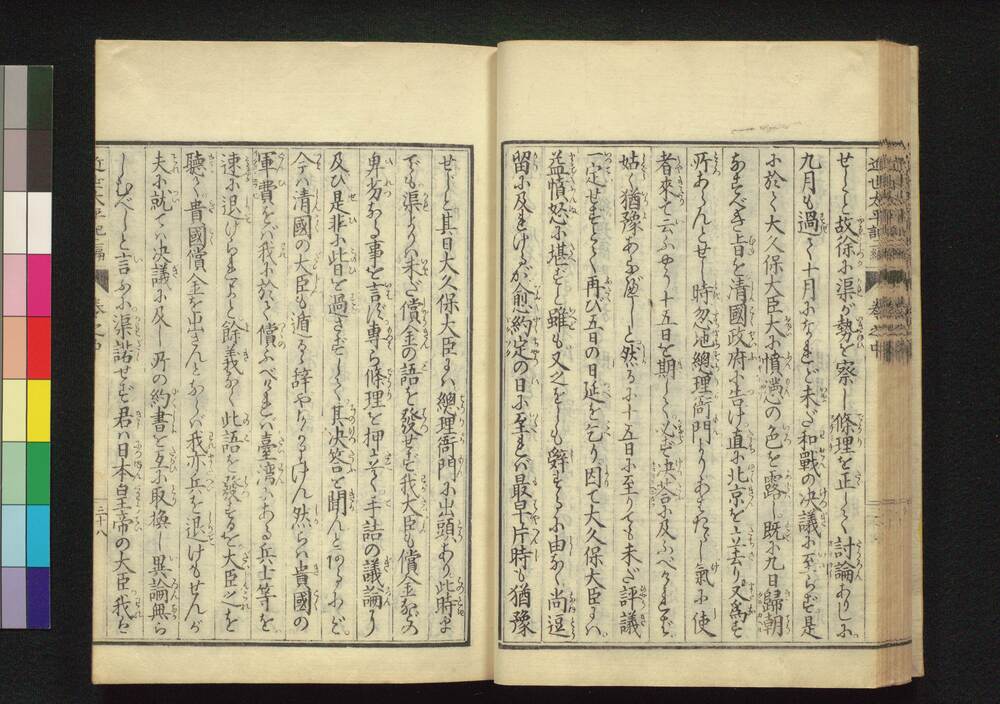 近世太平記 二編 卷之中
せしとと故徐に渠が勢を察し條理を正して討論ありしに
九月も過て十月になれど未だ和戰の决議に至らず是
に於て大久保大臣大に憤懣の色を露し既に九日歸朝
なすべき旨を清國政府に告け直に北京を立去り又為す
所あらんとせし時忽地總理衙門よりあわたゞし氣に使
者來て云ふやう十五日を期して必ず决答に及ふべければ
姑く猶豫あるべしと然るに十五日に至りても未だ評議
一定せずとて再び五日の日延を乞り因て大久保大臣には
益憤怒に堪ずと雖も又之をしも辭するに由なく尚逗
留に及れけるが愈約定の日に至れば最早片時も猶豫
せじと其日大久保大臣には總理衙門に出頭あり此時ま
でも渠よりは未だ償金の語を發せず我大臣も償金などの
卑劣なる事を言ず專ら條理を押立て手詰の議論に
及び是非に此日を過さずして其决答を聞んとありけれど
今は清國の大臣も遁るゝ辞やなかりけん然らは貴國の
軍費をば我に於て償ふべければ臺湾にある兵士等を
速に退けられよと餘義なく此語を發するを大臣之を
聽て貴國償金を出さんとならば我亦兵を退けもせんが
夫に就ては决議に及し所の約書を互に取換し異論無ら
しむべしと言ふに渠諾せず君は日本皇帝の大臣我は
近世太平記 二編 卷之中 三十八